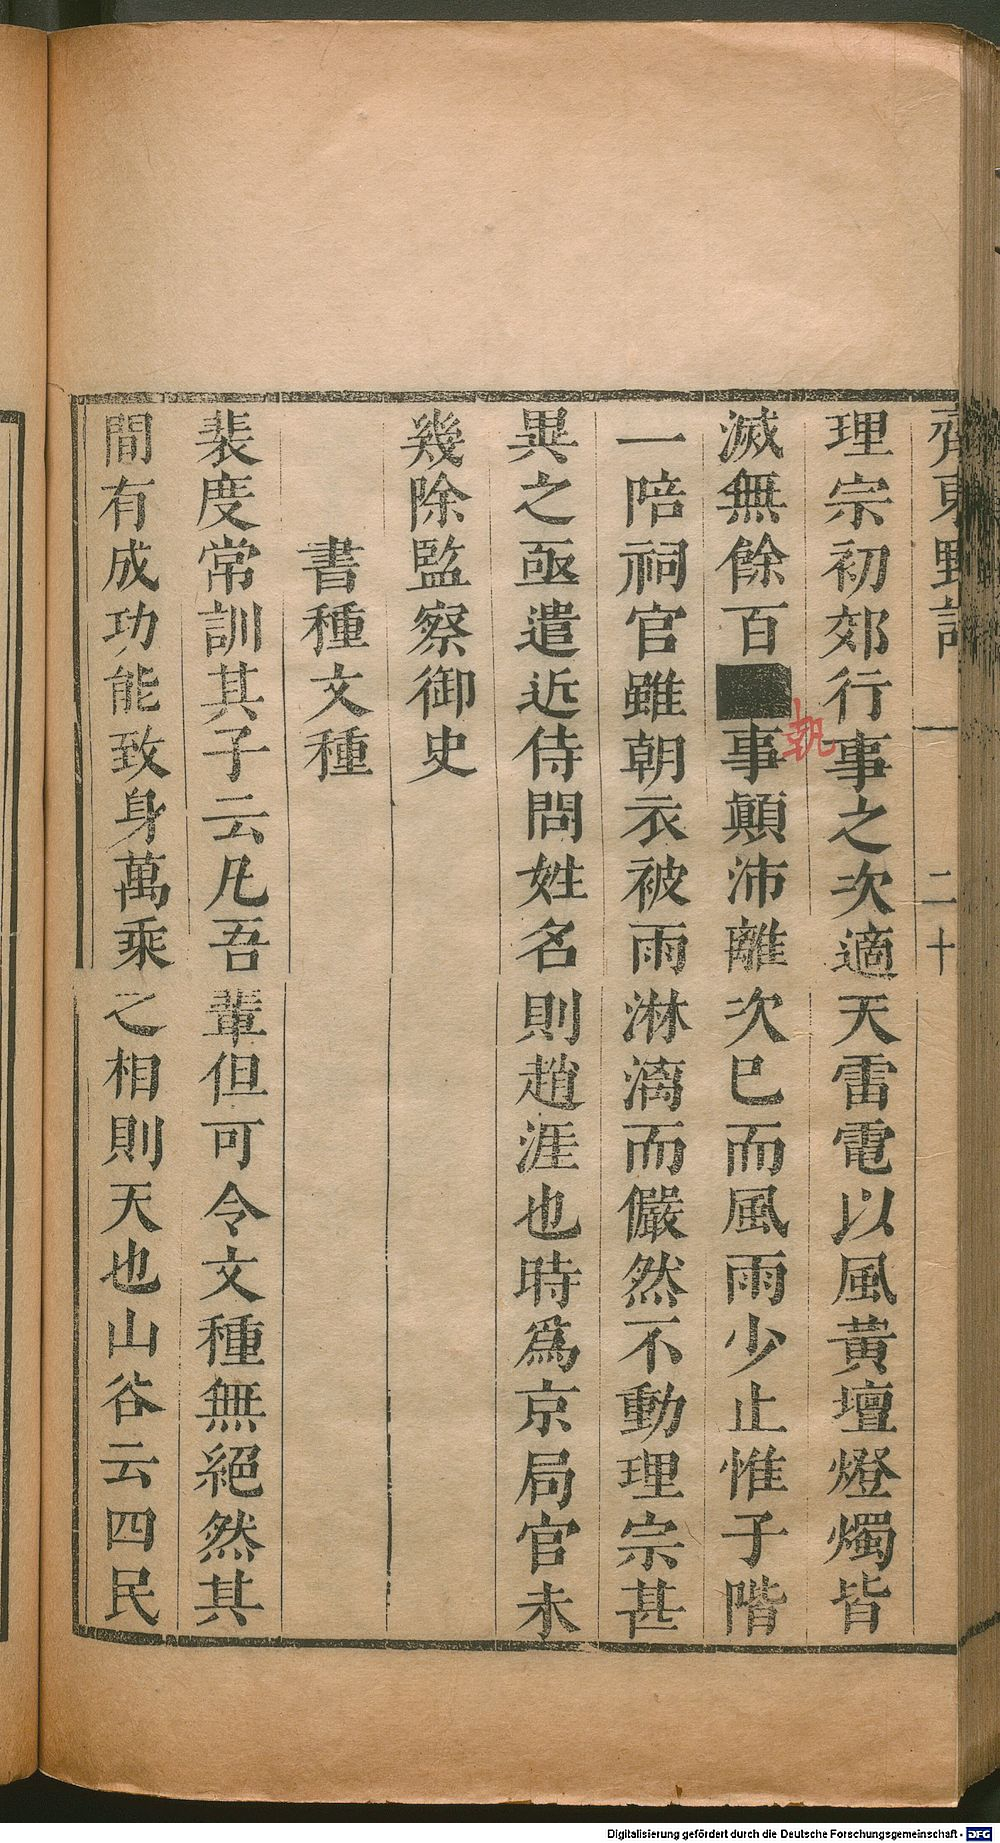 齊東野語 一 二十
理宗初郊行事之次適天雷電以風黃壇燈燭皆
滅無餘百■事顛沛離次已而風雨少止惟子階
執
一陪祠官雖朝衣被雨淋漓而儼然不動理宗甚
異之亟遣近侍問姓名則趙涯也時爲京局官未
幾除監察御史
書種文種
裴度常訓其子云凡吾輩但可令文種無絕然其
間有成功能致身萬乘之相則天也山谷云四民
Digitalisierung gefördert durch die Deutsche Forschungsgemeinschaft - DFG